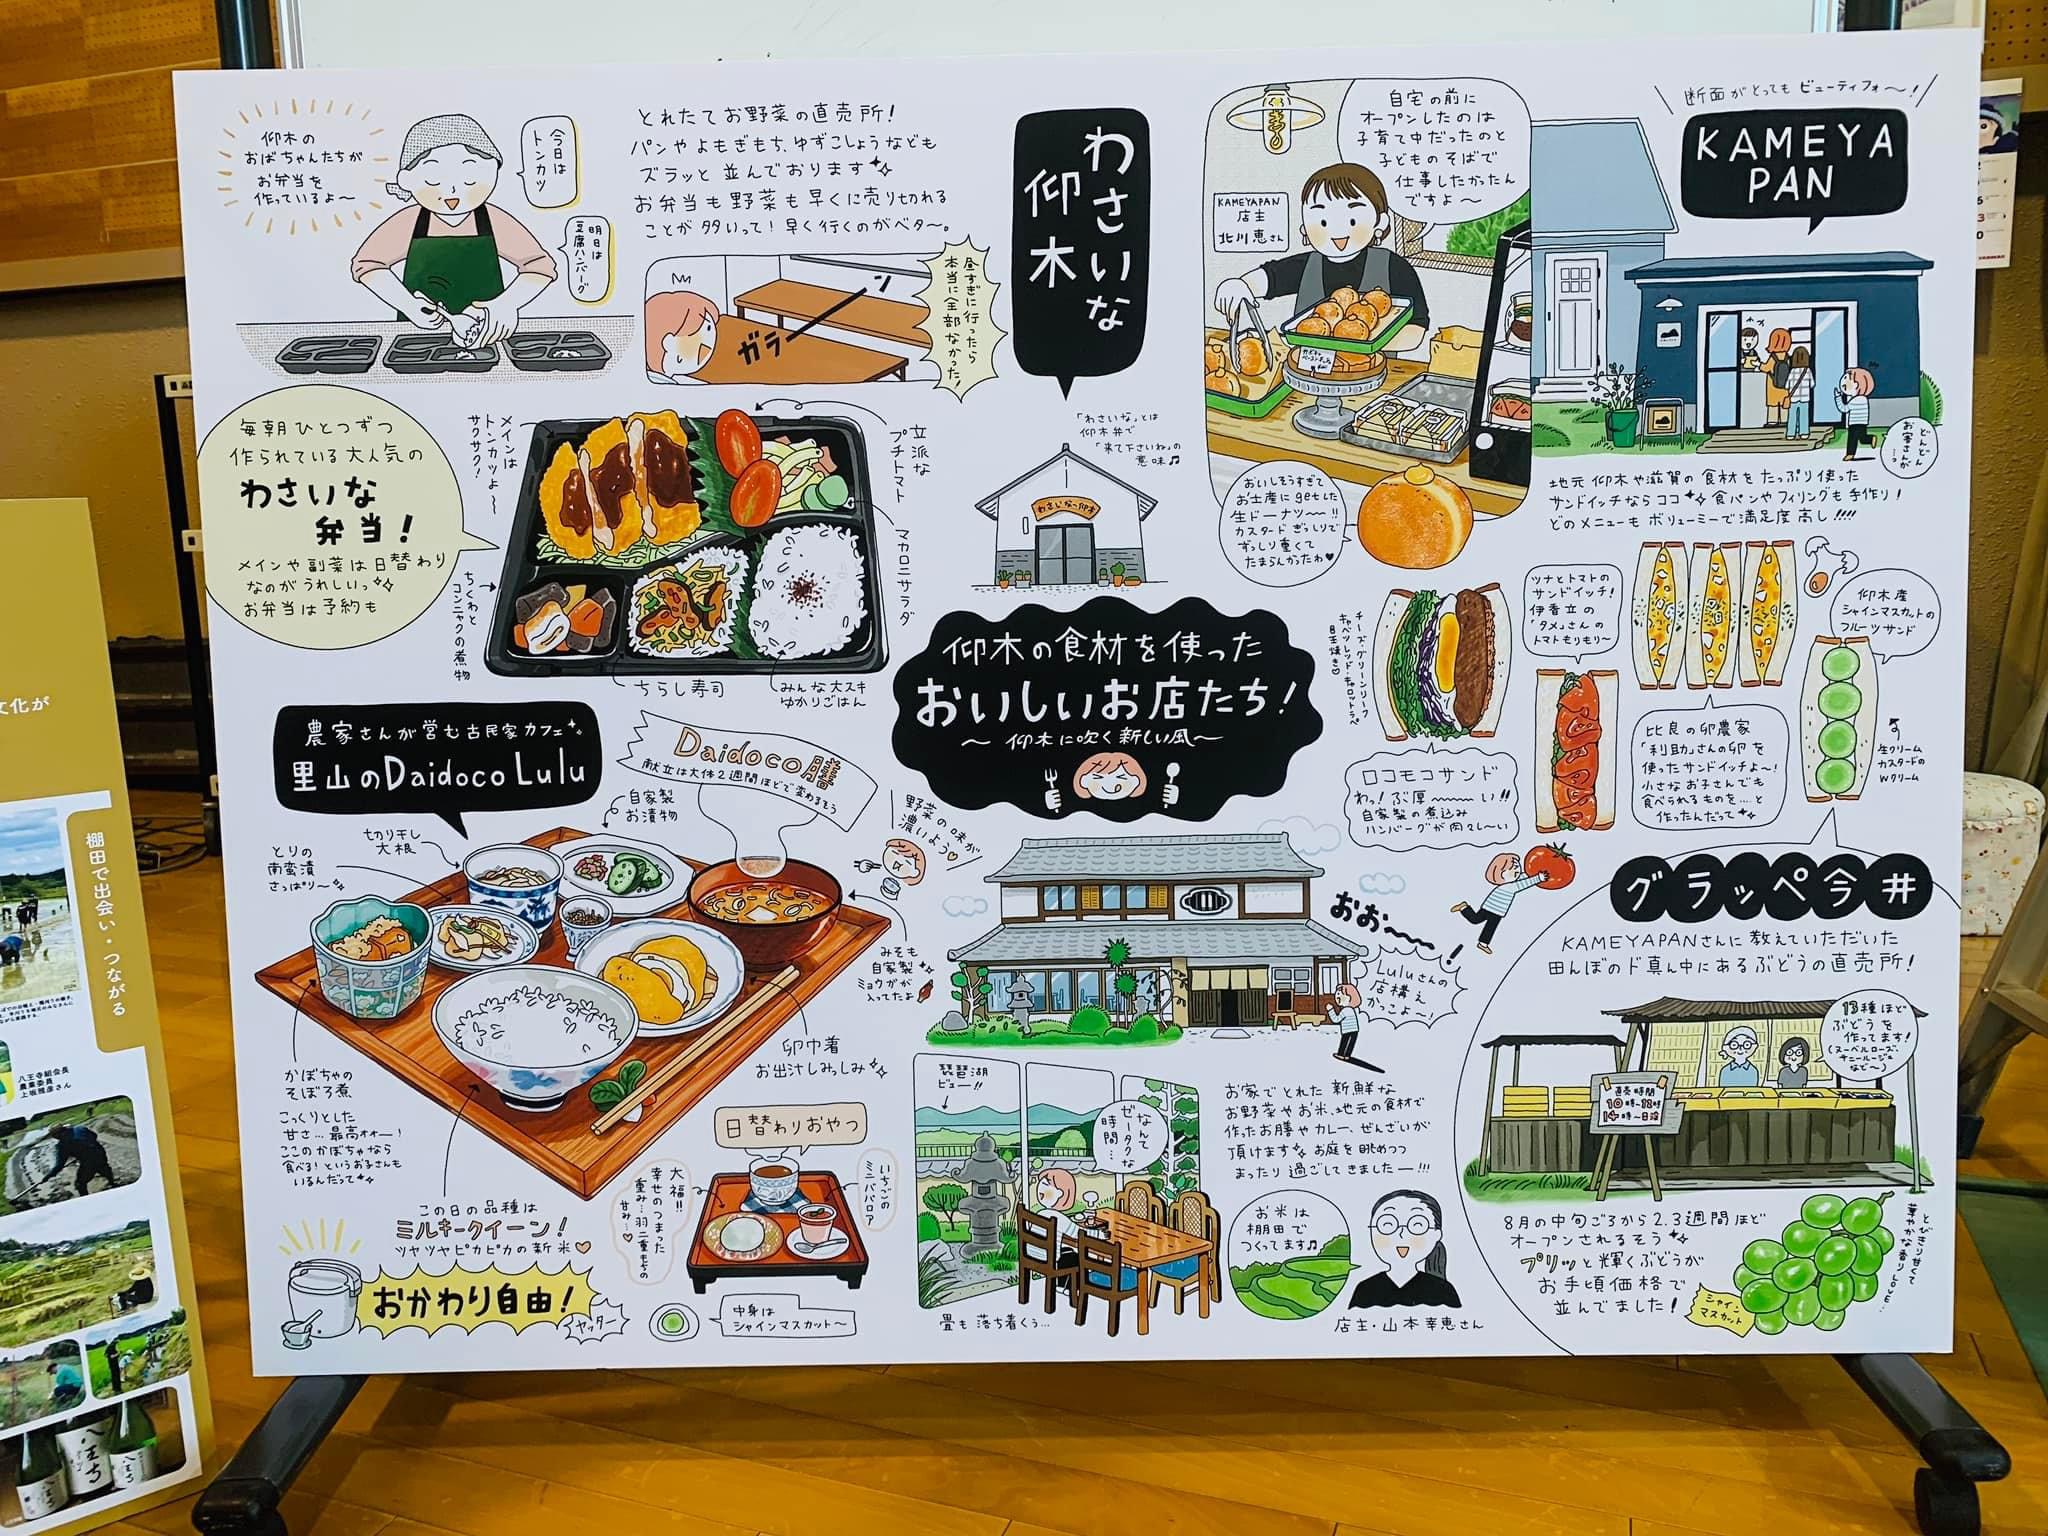 仰木の
おばちゃんたちが
お弁当を
作っているよ〜
今日は
トンカツ
明日は
豆腐ハンバーグ
とれたてお野菜の直売所!
パンやよもぎもち、ゆずこしょうなども
ズラッと並んでおります
お弁当も野菜も早くに売り切れる
ことが多いって!早く行くのがベター。
ガラーン
昼すぎに行ったら
本当に全部なかった!
わさいな
仰木
「わさいな」とは
仰木弁で
「来て下さいね」の
意味♫
わさいな〜仰木
毎朝ひとつずつ
作られている大人気の
わさいな
弁当!
メインや副菜は日替わり
なのがうれしいっ
お弁当は予約も
メインは
トンカツよ〜
サクサク!
立派な
プチトマト
マカロニサラダ
ちくわと
コンニャクの煮物
ちらし寿司
みんな大スキ
ゆかりごはん
仰木の食材を使った
おいしいお店たち!
〜仰木に吹く新しい風〜
断面がとってもビューティフォ〜!
KAMEYA
PAN
自宅の前に
オープンしたのは
子育て中だったのと
子どものそばで
仕事したかったん
ですよ〜
KAMEYAPAN
店主
北川恵さん
どんどん
お客さんが
…っ
おいしそうすぎて
お土産にgetした
生ドーナツ〜!!
カスタードぎっしりで
ずっしり重くて
たまらんかったわ♥
地元仰木や滋賀の食材をたっぷり使った
サンドイッチならココ 食パンやフィリングも手作り!
どのメニューもボリューミーで満足度高し!!!!
チーズ・グリーンリーフ
キャベツ・レッド・キャロットラペ
目玉焼き♡
ツナとトマトの
サンドイッチ!
伊香立の
「タメ」さんの
トマトもりもり〜
仰木産
シャインマスカットの
フルーツサンド
ロコモコサンド
わっ!ぶ厚〜〜い!!
自家製の煮込み
ハンバーグが肉々し〜い
比良の卵農家
「利助」さんの卵を
使ったサンドイッチよ〜!
小さなお子さんでも
食べられるものを…と
作ったんだって
生クリーム
カスタードの
Wクリーム
農家さんが営む古民家カフェ
里山のDaidoco Lulu
Daidoco膳
献立は大体2週間ほどで変わるそう
自家製
お漬物
切り干し
大根
とりの
南蛮漬
さっぱり〜
野菜の味が
濃いよう♡
みそも
自家製
ミョウガが
入ってたよ
卵巾着
お出汁しみっしみ
かぼちゃの
そぼろ煮
こっくりとした
甘さ…最高オオー!
ここのかぼちゃなら
食べる!というお子さんも
いるんだって
この日の品種は
ミルキークイーン!
ツヤツヤピカピカの新米♡
おかわり自由!
ヤッター
日替わりおやつ
大福!!
幸せのつまった
重み…羽二重もちの
甘み…♡
いちごの
ミニババロア
中身は
シャインマスカット〜
おお〜〜!
Luluさんの
店構え
かっこよ〜!
琵琶湖
ビュー!!
なんて
ゼータクな
時間…
畳も落ち着くぅ…
お家でとれた新鮮な
お野菜やお米、地元の食材で
作ったお膳やカレー、ぜんざいが
頂けます お庭を眺めつつ
まったり過ごしてきましたー!!!
お米は
棚田で
つくってます♫
店主・山本幸恵さん
グラッペ今井
KAMEYAPANさんに教えていただいた
田んぼのド真ん中にあるぶどうの直売所!
13種ほど
ぶどうを
作ってます!
(ヌーベルローズ、
サニールージュ
など〜)
直売時間
10時〜12時
14時〜日没
8月の中旬ごろから2.3週間ほど
オープンされるそう
プリッと輝くぶどうが
お手頃価格で
並んでました!
シャイン
マスカット
とびきり甘くて
華やかな香りLOVE…
文化が
棚田で出会い・つながる
八王寺組会長
農業委員
上坂雅彦さん
八王寺